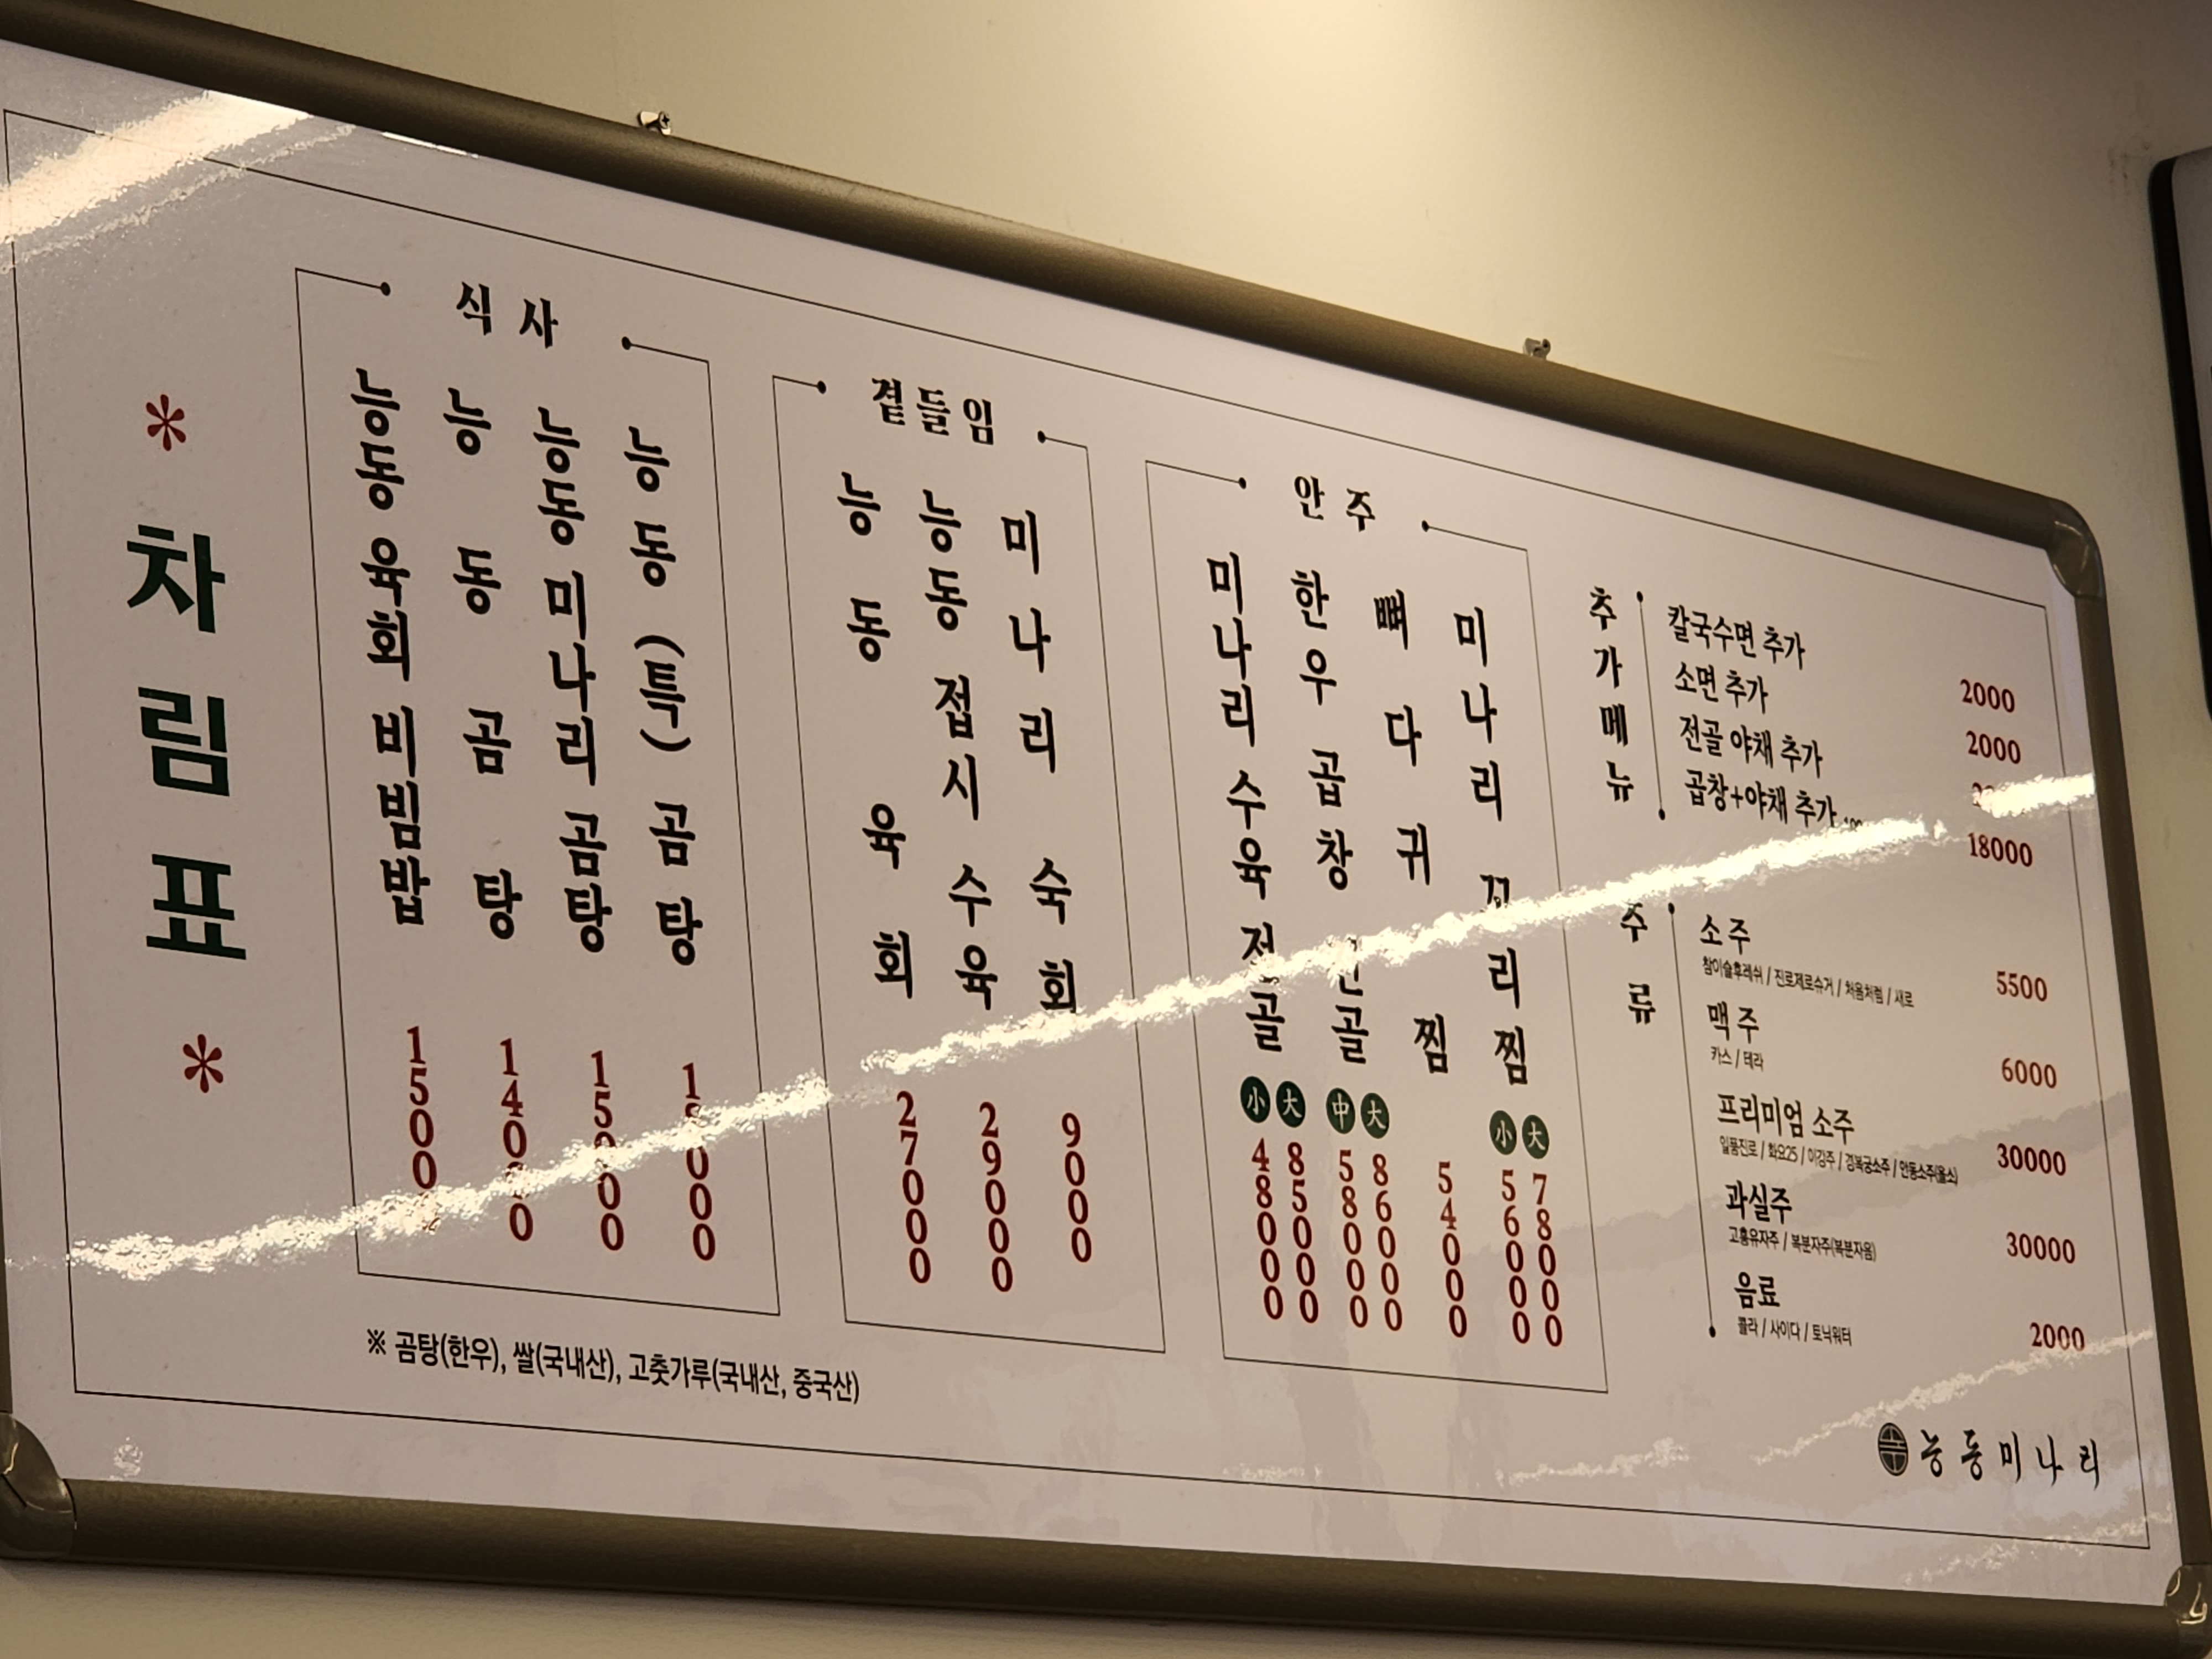 * 차림표 *
식사
능동육회비빔밥
능동곰탕 14000
능동미나리곰탕 15000
능동(특)곰탕
곁들임
능동육회 27000
능동접시수육 29000
미나리숙회 9000
안주
미나리수육전골 小 48000 大 85000
한우곱창전골 中 58000 大 86000
뼈다귀찜 54000
미나리꼬리찜 小 56000 大 78000
추가메뉴
칼국수면 추가 2000
소면 추가 2000
전골 야채 추가
곱창+야채 추가 18000
주류
소주 5500
참이슬후레쉬 / 진로제로슈거 / 처음처럼 / 새로
맥주 6000
카스 / 테라
프리미엄 소주 30000
일품진로 / 화요25 / 이강주 / 경복궁소주 / 안동소주(올소)
과실주 30000
고흥유자주 / 복분자주(복분자음)
음료 2000
콜라 / 사이다 / 토닉워터
※ 곰탕(한우), 쌀(국내산), 고춧가루(국내산, 중국산)
능동미나리